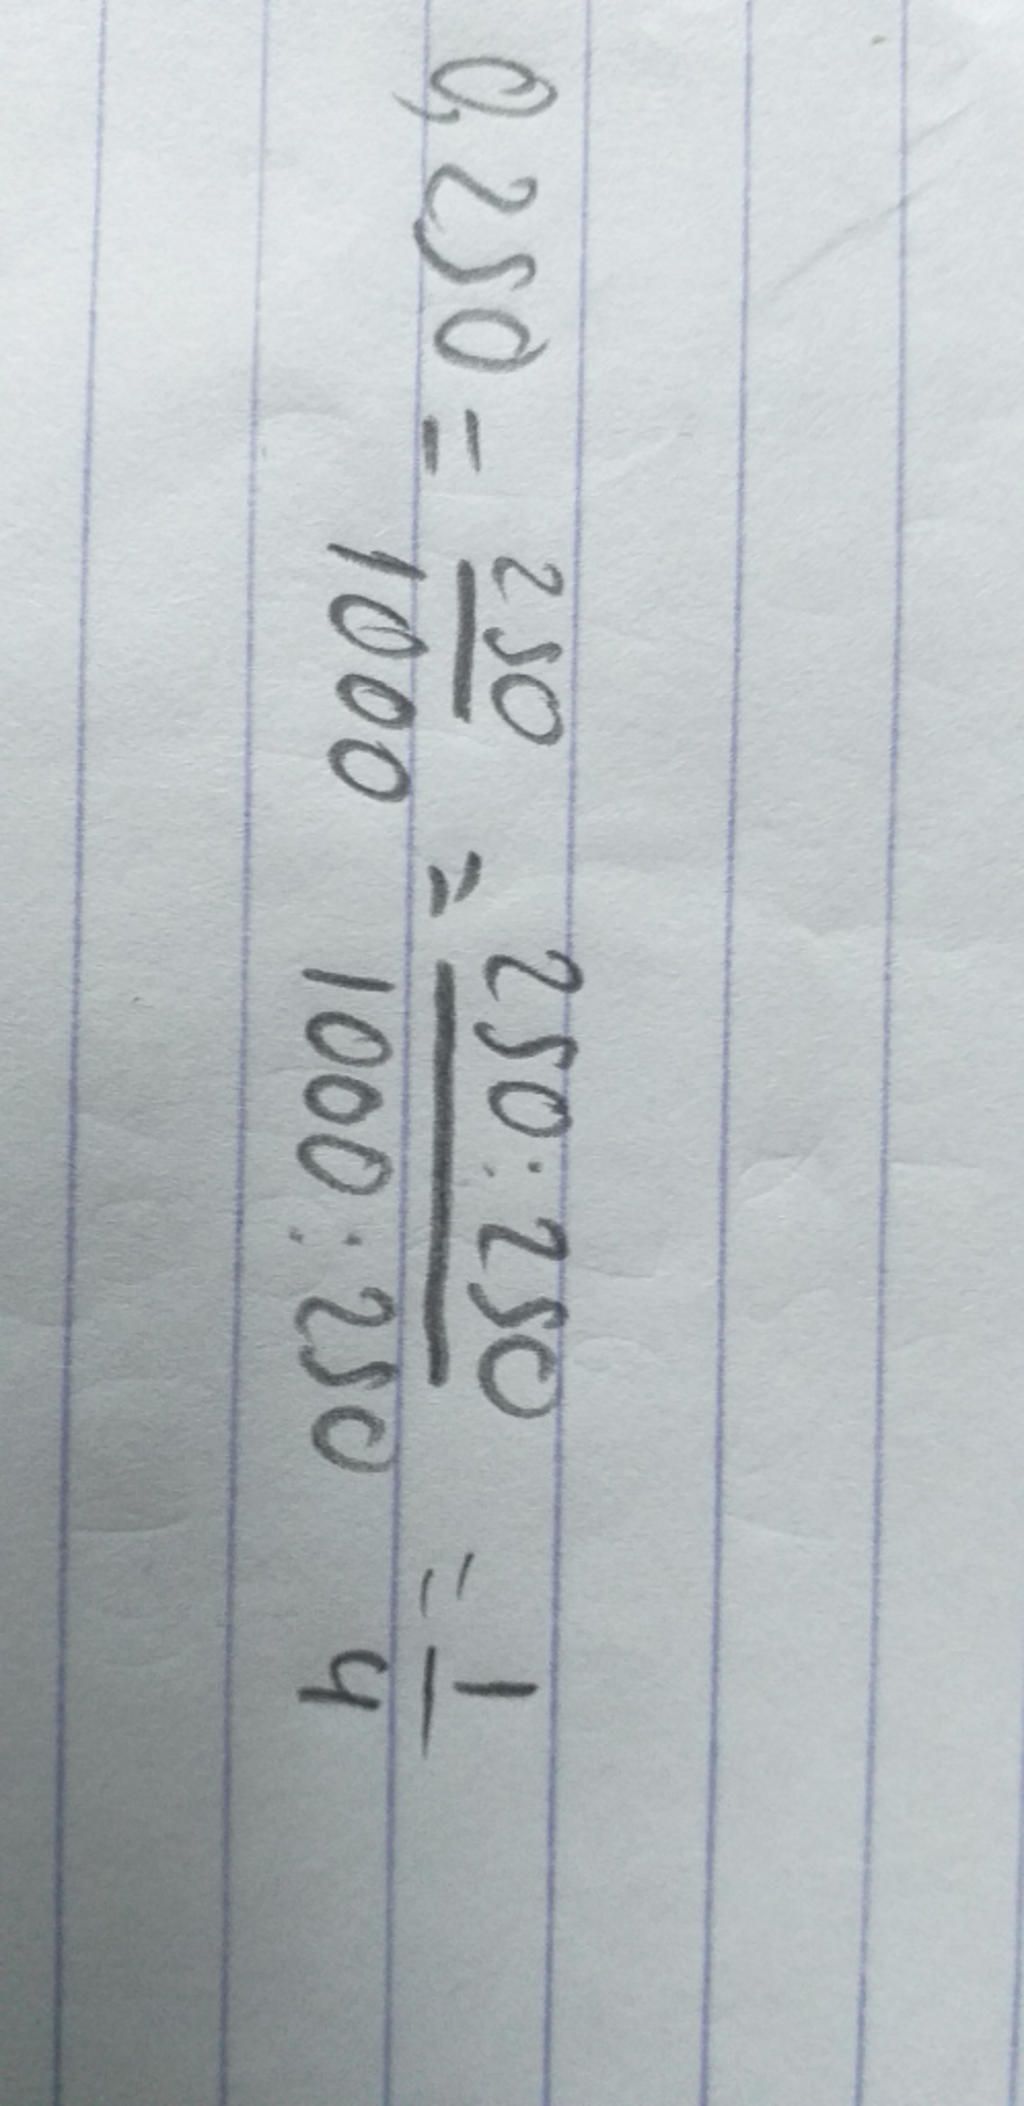 0,250 = 250/1000 = 250:250/1000:250 = 1/4